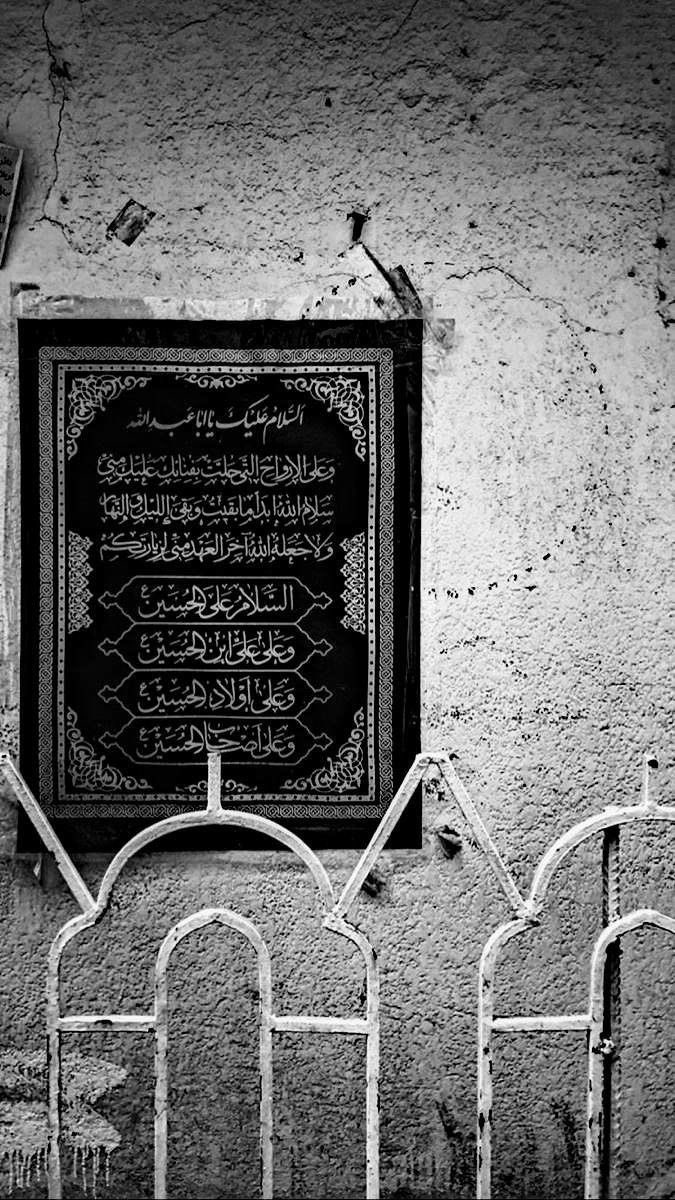 اَلسَّلامُ عَلَيْكَ يا اَبا عَبْدِ اللهِ
وَعَلَى الاَرْواحِ الَّتي حَلَّتْ بِفِنائِكَ عَلَيْكَ مِنّي
سَلامُ اللهِ اَبَداً ما بَقيتُ وَبَقِيَ اللَّيْلُ وَالنَّهارُ
وَلا جَعَلَهُ اللهُ آخِرَ الْعَهْدِ مِنّي لِزِيارَتِكُمْ
اَلسَّلامُ عَلَى الْحُسَيْنِ
وَعَلى عَلِيِّ ابْنِ الْحُسَيْنِ
وَعَلى اَوْلادِ الْحُسَيْنِ
وَعَلى اَصْحابِ الْحُسَيْنِ